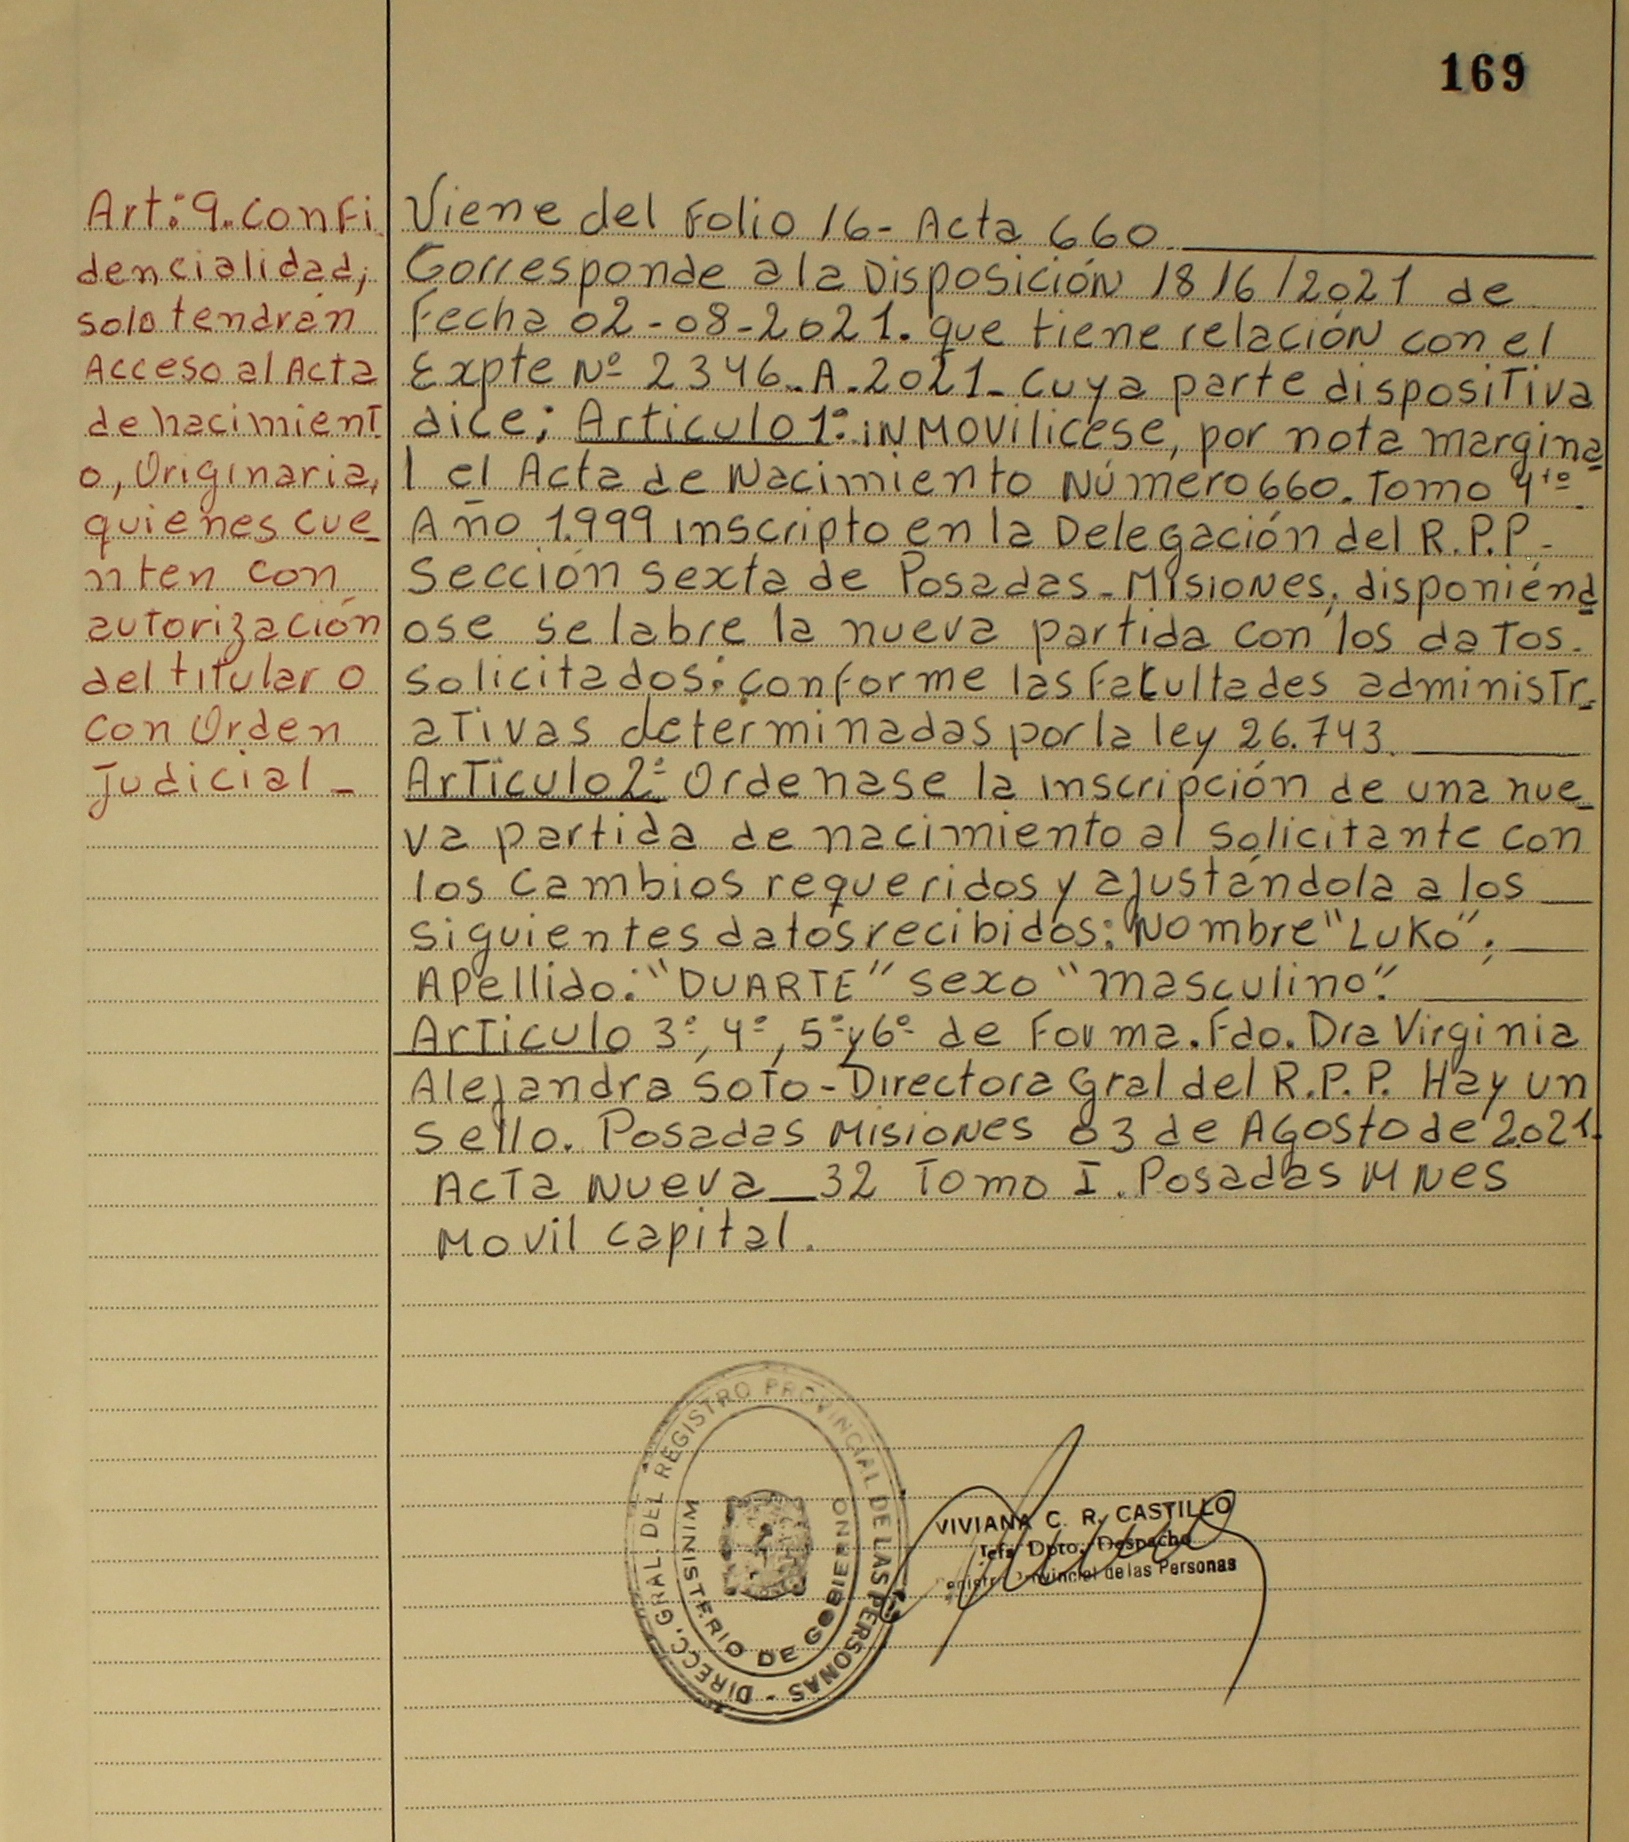 169
Art: 9. Confi
dencialidad,
solo tendrán
Acceso al Acta
de nacimient
o, Originaria,
quienes cue
nten con
autorización
del titular o
con Orden
Judicial_
Viene del Folio 16- Acta 660.
Corresponde a la Disposición 1816/2021 de
Fecha 02-08-2021. que tiene relación con el
Expte Nº 2346.A.2021- cuya parte dispositiva
dice; Articulo 1º: INMOVILICESE, por nota margina
l el Acta de Nacimiento Número 660. Tomo 4to
Año 1.999 inscripto en la Delegación del R.P.P-
Sección sexta de Posadas-Misiones, disponiénd
ose se labre la nueva partida con los datos.
solicitados: conforme las Facultades administr-
ativas determinadas por la ley 26.743.
Articulo 2º Ordenase la inscripción de una nue_
va partida de nacimiento al solicitante con
los cambios requeridos y ajustándola a los
siguientes datos recibidos: Nombre "LUKO";
Apellido: "DUARTE" sexo "masculino".
Articulo 3º, 4º, 5º y 6º de Forma. Fdo. Dra Virginia
Alejandra Soto-Directora Gral del R.P.P. Hay un
Sello. Posadas Misiones 03 de Agosto de 2.021.
Acta Nueva_32 Tomo I. Posadas MNES
Movil capital.
DIRECC. GRAL. DEL REGISTRO PROVINCIAL DE LAS PERSONAS -
MINISTERIO DE GOBIERNO
VIVIANA C. R. CASTILLO
Jefa Dpto. Despacho
Registro Provincial de las Personas